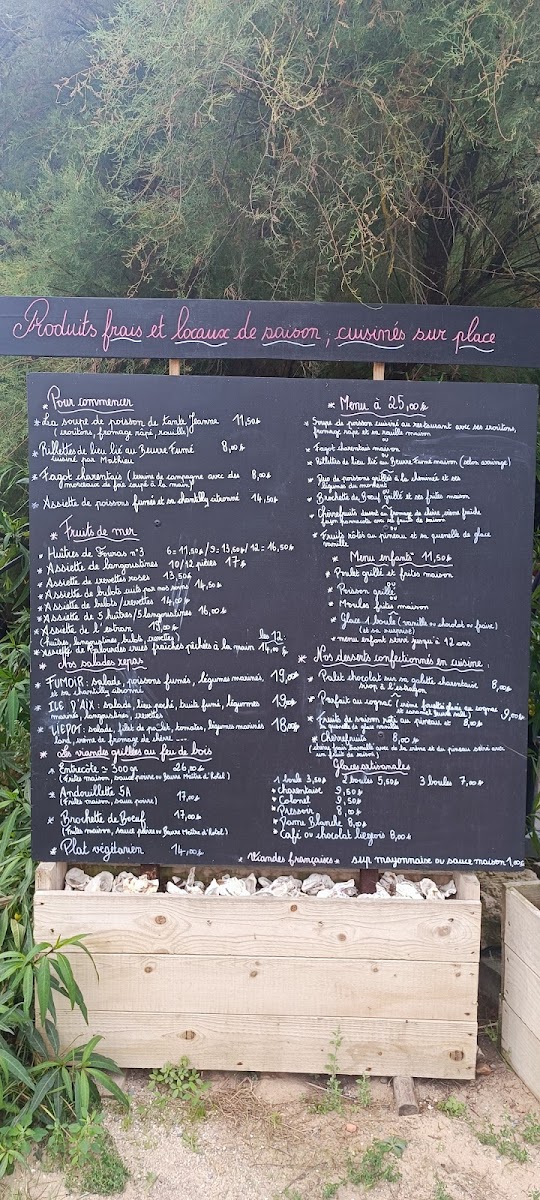 Produits frais et locaux de saison, cuisinés sur place
* Pour commencer
* La soupe de poisson de tante Jeanne 11,50€
(croûtons, fromage râpé, rouille)
* Rillettes de lieu lié au Beurre Fumé 8,00€
cuisiné par Mathieu
* Fagot charentais (terrine de campagne avec des 8,00€
morceaux de foie coupé à la main)
* Assiette de poissons fumés et sa chantilly citronné 14,50€
* Fruits de mer
* Huîtres de Fouras n°3 6=11,50€/9=13,50€/12=16,50€
* Assiette de langoustines 10/12 pièces 17€
* Assiette de crevettes roses 13,50€
* Assiette de bulots cuits par nos soins 14,50€
* Assiette de bulots/crevettes 14,00€
* Assiette de 5 huîtres/5 langoustines 16,00€
* Assiette de l'estran 19,00€
(huîtres, langoustines, bulots, crevettes)
les 12
* Assiette de Palourdes crues fraîches pêchées à la main 14,00€
* Nos salades repas
* FUMOIR: salade, poissons fumés, légumes marinés, 19,00€
et sa chantilly citronné
* ILE D'AIX: salade, lieu poché, buits fumé, légumes 19,00€
marinés, langoustines, crevettes
* LIEPOT: salade, filet de poulet, tomates, légumes marinés 18,00€
lard, crème de fromage de chèvre
* Les viandes grillées au feu de bois
* Entrecôte ≃ 300gr 26,00€
(Frites maison, sauce poivre ou Beurre Maître d'hotel)
* Andouillette 5A 17,00€
(Frites maison, sauce poivre)
* Brochette de Boeuf 17,00€
(Frites maison, sauce poivre ou Beurre Maître d'hotel)
* Plat végétarien 14,00€
* Menu à 25,00€
* Soupe de poisson cuisiné au restaurant avec ses croûtons,
fromage râpé et sa rouille maison
ou
* Fagot charentais maison
ou
* Rillettes de lieu lié au Beurre Fumé maison (selon arrivage)
* Duo de poissons grillés à la cheminée et ses
légumes du moment
ou
* Brochette de Boeuf grillé et ses frites maison
* Chèvrefruits
façon faisselle avec sa fruits de saison
ou
* Fruits rôtis au pineau et sa quenelle de glace
vanille
* Menu enfants 11,50€
* Poulet grillé et frites maison
ou
* Poisson grillé
ou
* Moules frites maison
* Glace 1 boule (vanille ou chocolat ou fraise)
(et sa surprise)
* menu enfant servi jusqu'à 12 ans
* Nos desserts confectionnés en cuisine
* Palet chocolat sur sa galette charentaise 8,00€
* Parfait au cognac 9,00€
* Fruits de saison rôti au pineau et 8,00€
sa quenelle de glace vanille
* Chèvrefruits 8,00€
un fruit de saison)
Glaces artisanales
1 boule 3,50€ 2 boules 5,50€ 3 boules 7,00€
* Charentaise 9,50€
* Colonel 9,50€
* Pressoir 8,00€
* Dame Blanche 8,00€
* Café ou chocolat liégeois 8,00€
* Viandes françaises * sup mayonnaise ou sauce maison 1,00€